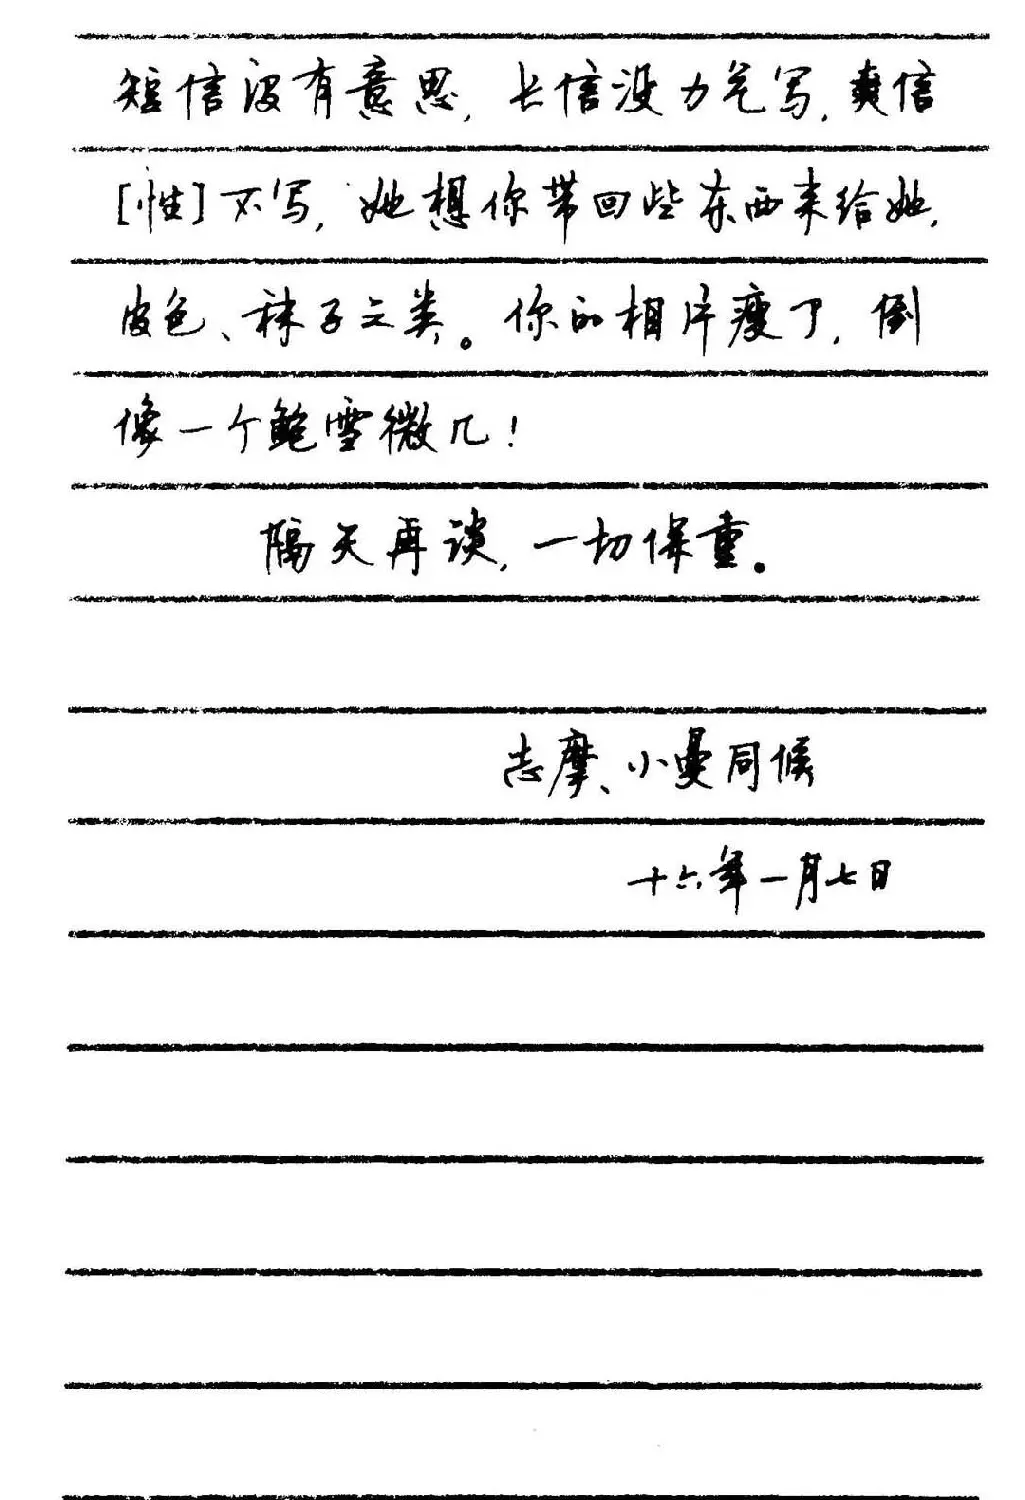 短信没有意思，长信没力气写，爽信
[性]不写，她想你带回些东西来给她，
皮色、袜子之类。你的相片瘦了，倒
像一个鲍雪微几！
隔天再谈，一切保重。
志摩、小曼同候
十六年一月七日